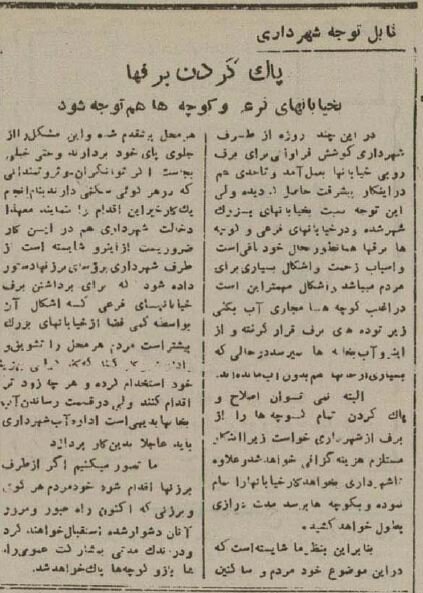 قابل توجه شهرداری
پاك كردن برفها
بخیابانهای فرعی و كوچه ها هم توجه شود
در این چند روزه از طرف
شهرداری كوشش فراوانی برای برف
روبی خیابانها بعمل آمد و تاحدی هم
دراینكار پیشرفت حاصل گردید ولی
این توجه نسبت بخیابانهای بزرك
شهر شده و درخیابانهای فرعی و كوچه
ها برفها همانطور بحال خود باقی است
و اسباب زحمت و اشكال بسیاری برای
مردم میباشد و اشكال مهمتر این است
در اغلب كوچه ها مجاری آب بكلی
زیر توده های برف قرار گرفته و از
اینرو آب بخانه ها نمیرسد در حالی كه
بسیاری از خانها هم بدون آب مانده‌اند.
البته نمی توان اصلاح و
پاك كردن تمام كوچه ها را از
برف از شهرداری خواست زیرا اینكار
مستلزم هزینه گزافی خواهد شد و علاوه
تا شهرداری بخواهد كار خیابانها را تمام
نموده و بكوچه ها برسد مدت درازی
بطول خواهد كشید.
بنابراین بنظر ما شایسته است كه
در این موضوع خود مردم و ساكنین
هر محل پیشقدم شده و این مشكل را از
جلوی پای خود بردارند و حتی خیلی
بجاست اگر توانگران و ثروتمندانی
كه در هر كوئی سكنی دارند بنام انجم
یك كار خیر این اقدام را بنمایند معهذا
دخالت شهرداری هم در این كار
ضروریست از اینرو شایسته است از
طرف شهرداری برؤسای برزنها دستور
داده شود كه برای برداشتن برف
خیابانهای فرعی كه اشكال آن
بواسطه كمی فضا از خیابانهای بزرك
بیشتر است مردم هر محل را تشویق و
خود استخدام كرده و هر چه زود تر
اقدام كنند ولی در قسمت رساندن آب
بخانها بدیهی است اداره آب شهرداری
باید عاجلا بدین كار پردازد
ما تصور میكنیم اگر از طرف
برزنها اقدام شود خود مردم هر كوی
و برزنی كه اكنون راه عبور و مرور
آنان دشوار شده استقبال خواهند كرد
و در اندك مدتی بمشاركت عمومی راه
ها و كوچه‌ها پاك خواهد شد.